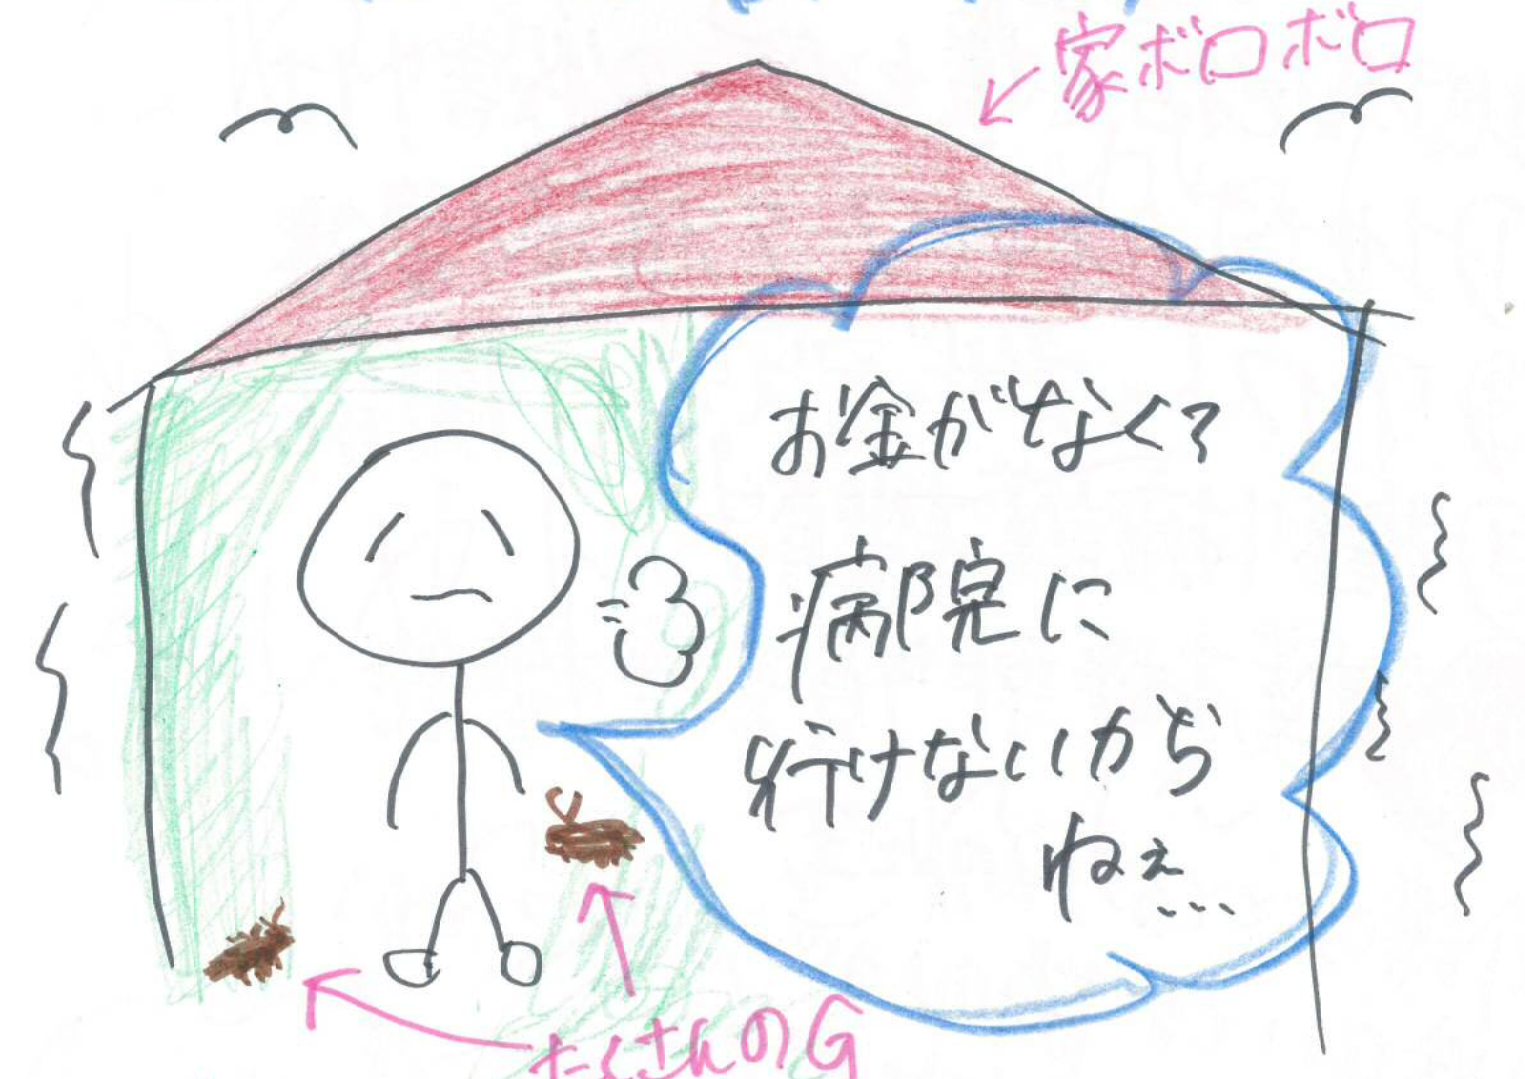 家ボロボロ
お金がなくて
病院に
行けないから
ねぇ…
たくさんのG